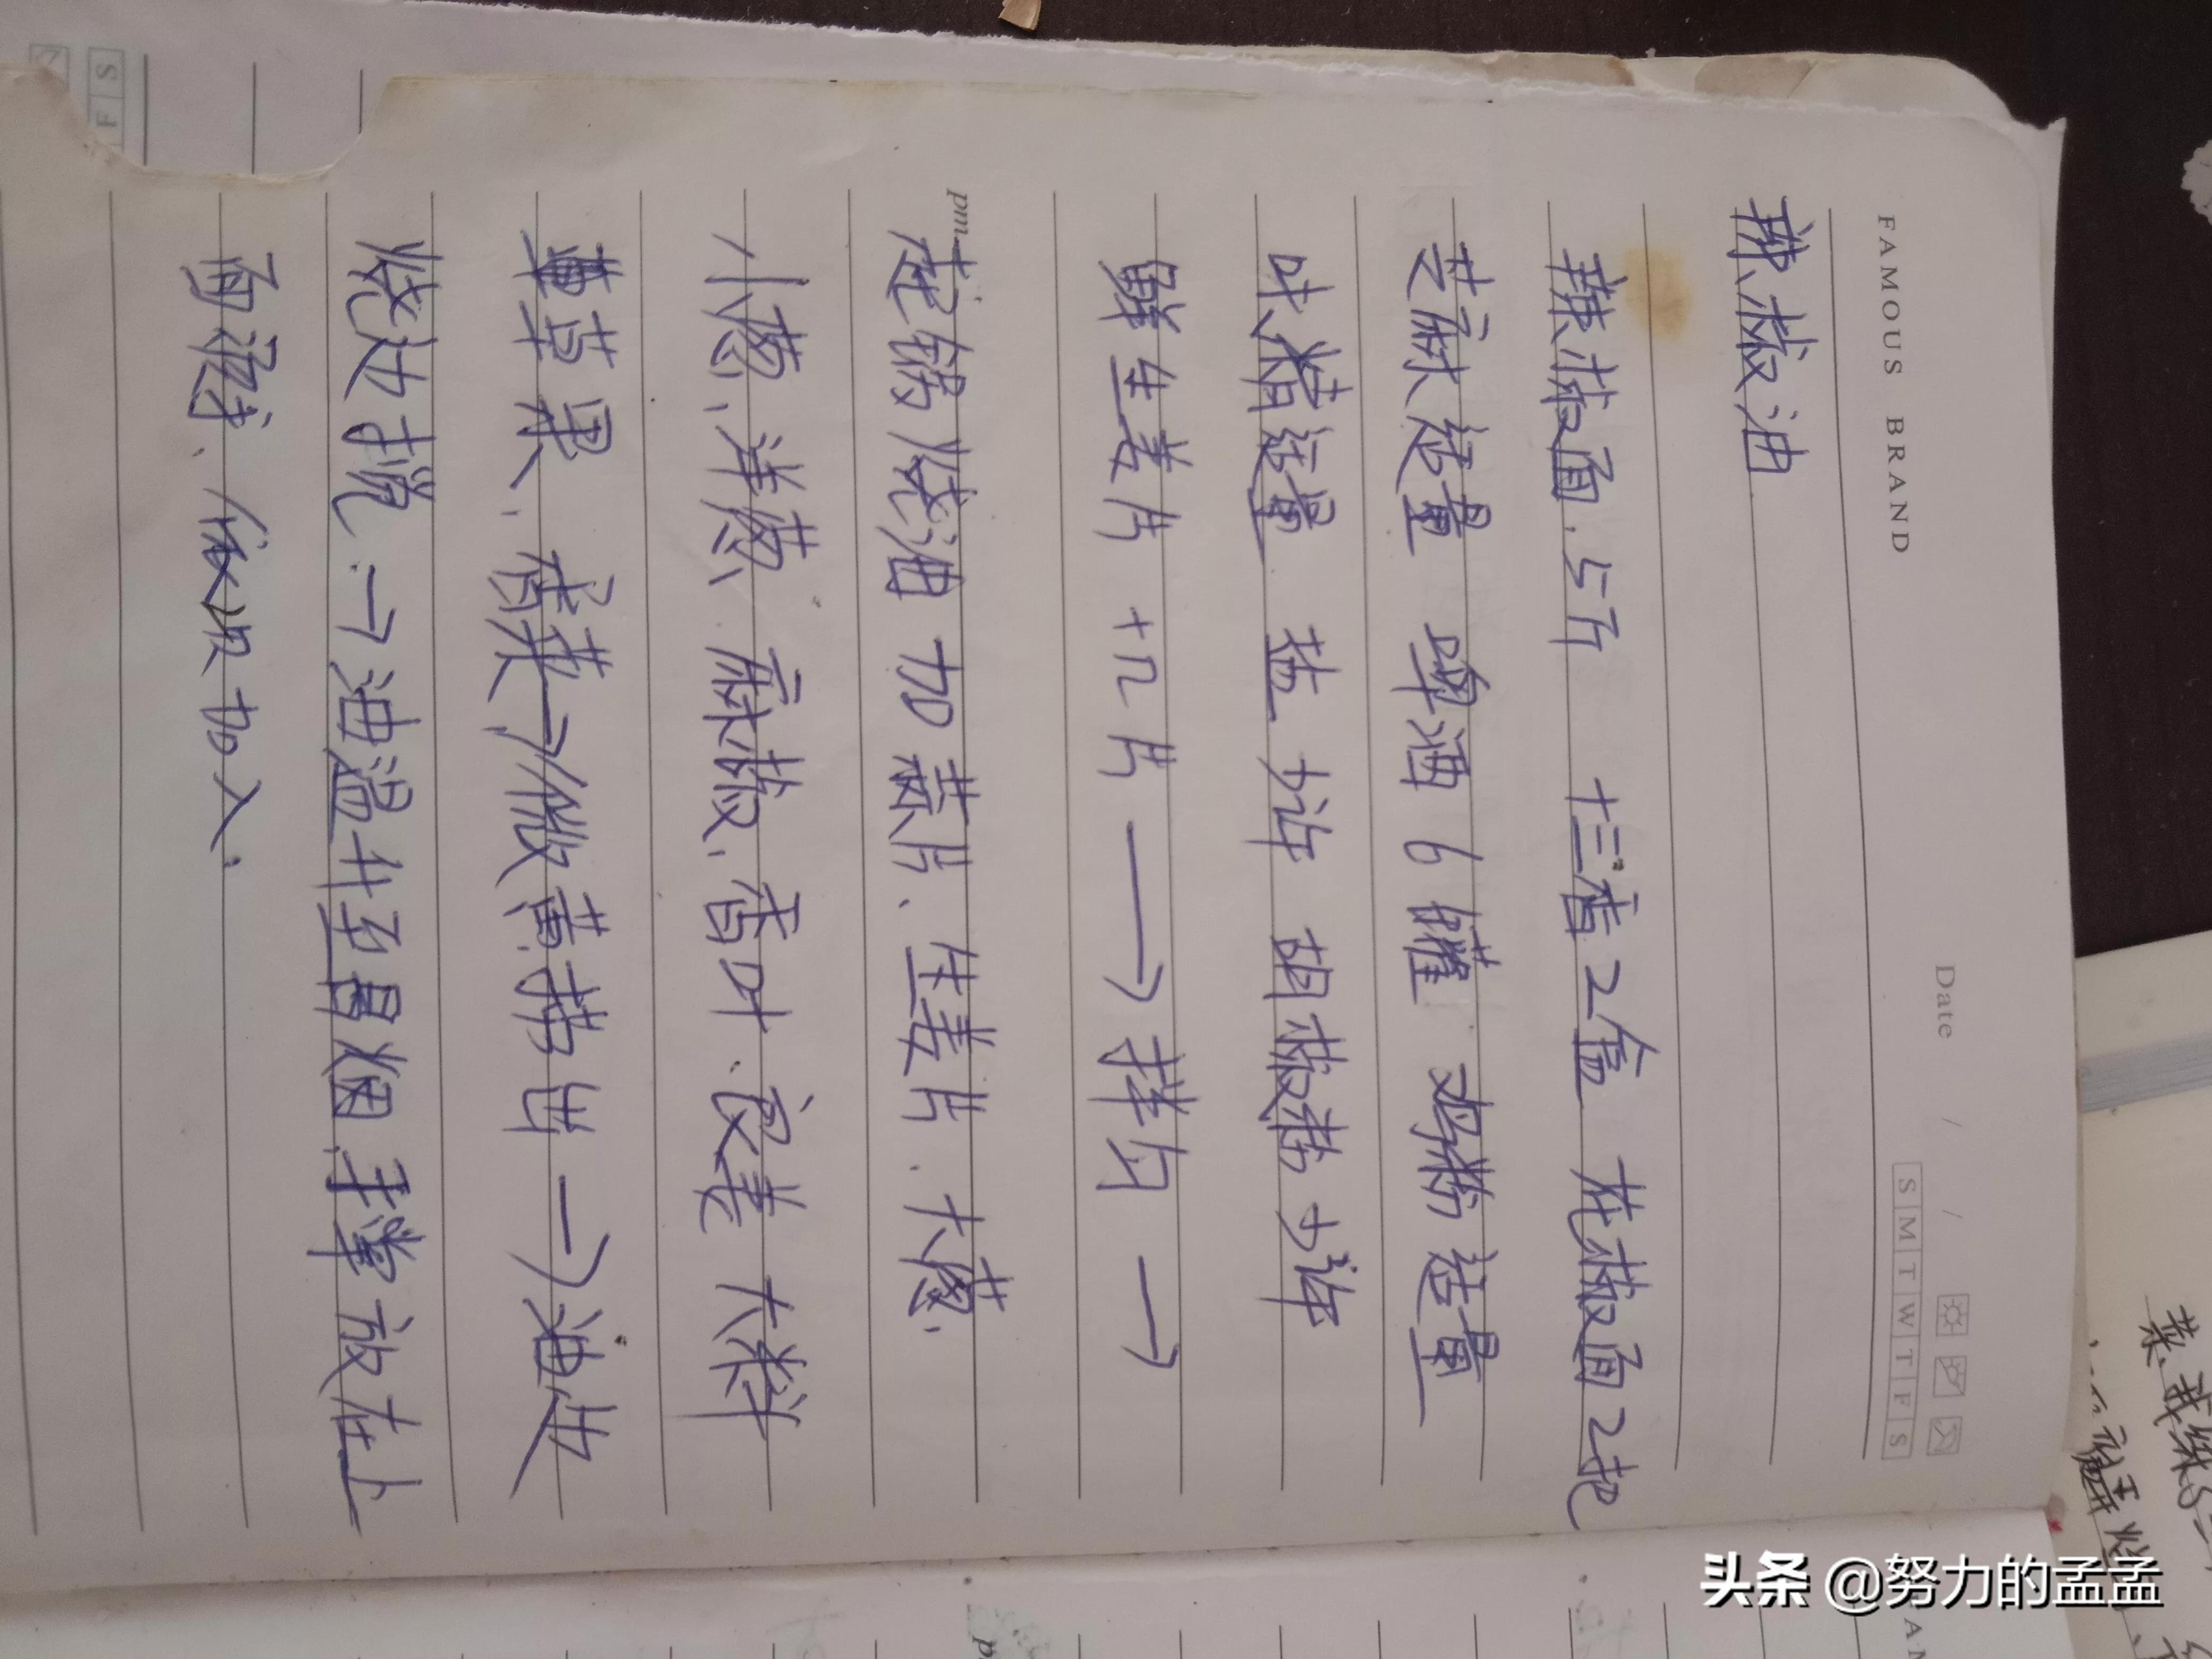 FAMOUS BRAND
Date / /
S M T W T F S
辣椒油
辣椒面.5斤 十三香2盒 花椒面2把
芝麻适量 啤酒6罐 鸡粉适量
味精适量 盐少许 胡椒粉少许
鲜生姜片 +n片 → 拌匀 →
pm
起锅烧油 加蒜片、生姜片、大葱、
小葱、洋葱、麻椒、香叶、良姜 大料
草果、香菜→微黄捞出→油少
烧边搅.→油温升至冒烟.手掌放在上
面 依次加入.
头条 @努力的孟孟